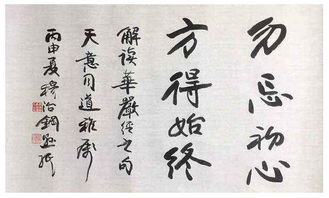 勿忘初心
方得始终
解读華嚴经之句
天意同道雅属
丙申夏穆治鋼